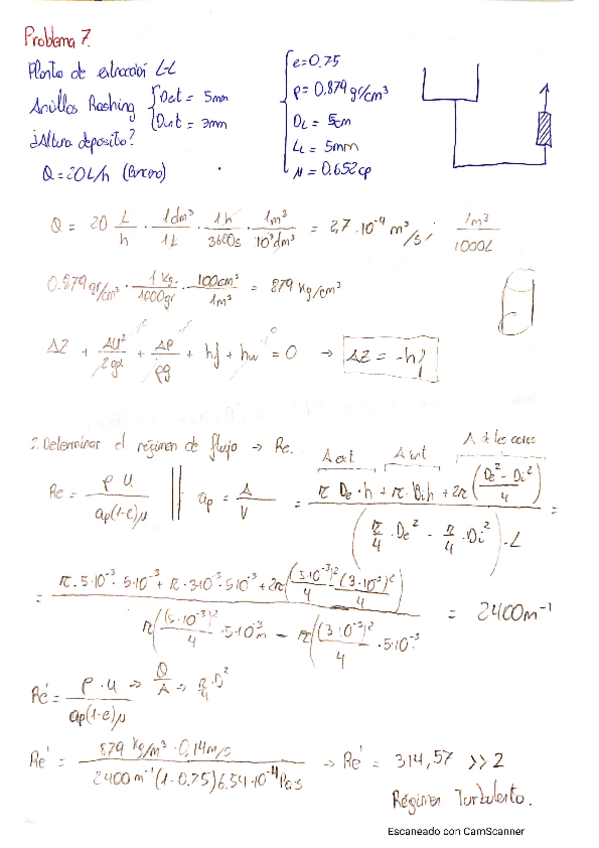 Problema 7.
Planta de extracción L-L
Anillos Rashing { Dext = 5mm
Dint = 3mm
¿Altura deposito?
Q=20L/h (Benceno)
e=0.75
ρ = 0,879 gr/cm³
DL = 5cm
LL = 5mm
μ = 0.652cp
Q = 20 L/h · 1dm³/1L · 1h/3600s · 1m³/10³dm³ = 2,7·10⁻⁴ m³/s; 1m³/1000L
0.879gr/cm³ · 1 kg./1000gr · 100cm³/1m³ = 879 kg/cm³
ΔZ + ΔU²/2gα + ΔP/ρg + hf + hw = 0 → ΔZ = -hf
2. Determinar el régimen de flujo → Re.
A ext A int A de las caras
Re = ρ u / ap(1-e)μ || ap = A/V = π De·h + π·Di h + 2π (De² - Di² / 4) / (π/4 · De² - π/4 · Di²)·L =
= π·5·10⁻³·5·10⁻³ + π·3·10⁻³·5·10⁻³ + 2π((5·10⁻³)²/4 - (3·10⁻³)²/4) / π((5·10⁻³)²/4 · 5·10⁻³m - π((3·10⁻³)²/4 · 5·10⁻³ = 2400m⁻¹
Re' = ρ · u / ap(1-e)μ → Q/A → π/4 D²
Re' = 879 kg/m³ · 0,14m/s / 2400m⁻¹(1-0.75)6.54·10⁻⁴Pa·s → Re' = 314,57 >> 2
Régimen Turbulento.
Escaneado con CamScanner